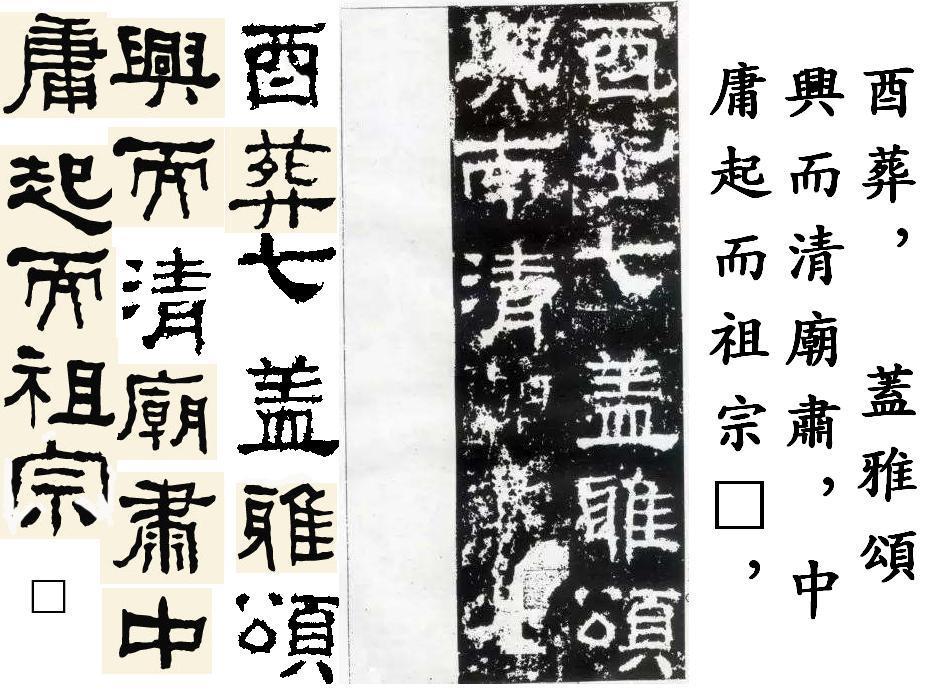 酉葬，蓋雅頌
興而清廟肅，中
庸起而祖宗□，
酉葬七盖雅頌
興南清
酉葬七盖雅頌
興而清廟肅中
庸起而祖宗□